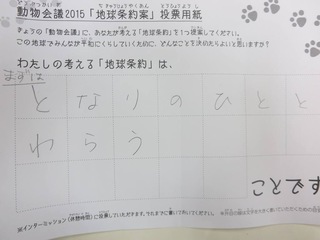 動物会議2015「地球条約案」投票用紙
きょうの「動物会議」に、あなたが考える「地球条約」を1つ提案してください。
この地球でみんなが平和にくらしていくために、どんなことを決めたらよいと思いますか?
わたしの考える「地球条約」は、
まずは
となりのひとと
わらう
ことです
※インターミッション(休憩時間)に投票していただきます。それまでに書いておいてください。